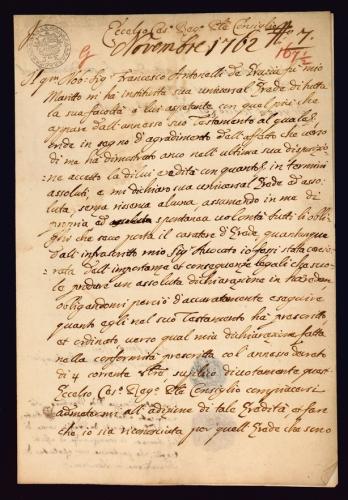 Eccelso Ces.º Reg.º Ele Consiglio
Novembre 1762 Nº 7.
167½
Il qm Nob: Sig.r Francesco Antonelli de Grazia fu mio
Marito m'ha instituita sua universal Erede di tutta
la sua facoltà
appare dall'annesso suo Testamento al quale
onde in segno d'agradimento dall'affetto che verso
di me ha dimostrato anco nell'ultima sua disposizio
ne accetto la di lui eredità in termini
assoluti, e mi dichiaro sua universal Erede asso
luta, senza riserva alcuna, assumendo in me di
propria, ed spontanea volontà tutti li obbli
ghi che seco porta il carattere d'Erede, quantunque
dall'infrascritto mio Sig.r Avocato io fossi stata
dell'importanza et conseguenze legali che suo
le produre un assoluta dichiarazione
obligandomi perciò d'accuratamente eseguire
quanto egli nel suo Testamento ha prescritto,
et ordinato verso qual mia dichiarazione fatta
nella conformità prescritta col annesso decreto
di 4 corrente supplico divotamente quest'
Eccelso Ces.º Reg.º Ele Consiglio compiacersi
admetermi all'adizione di tale Eredità a fin
che io sia riconosciuta per quell'Erede che sono